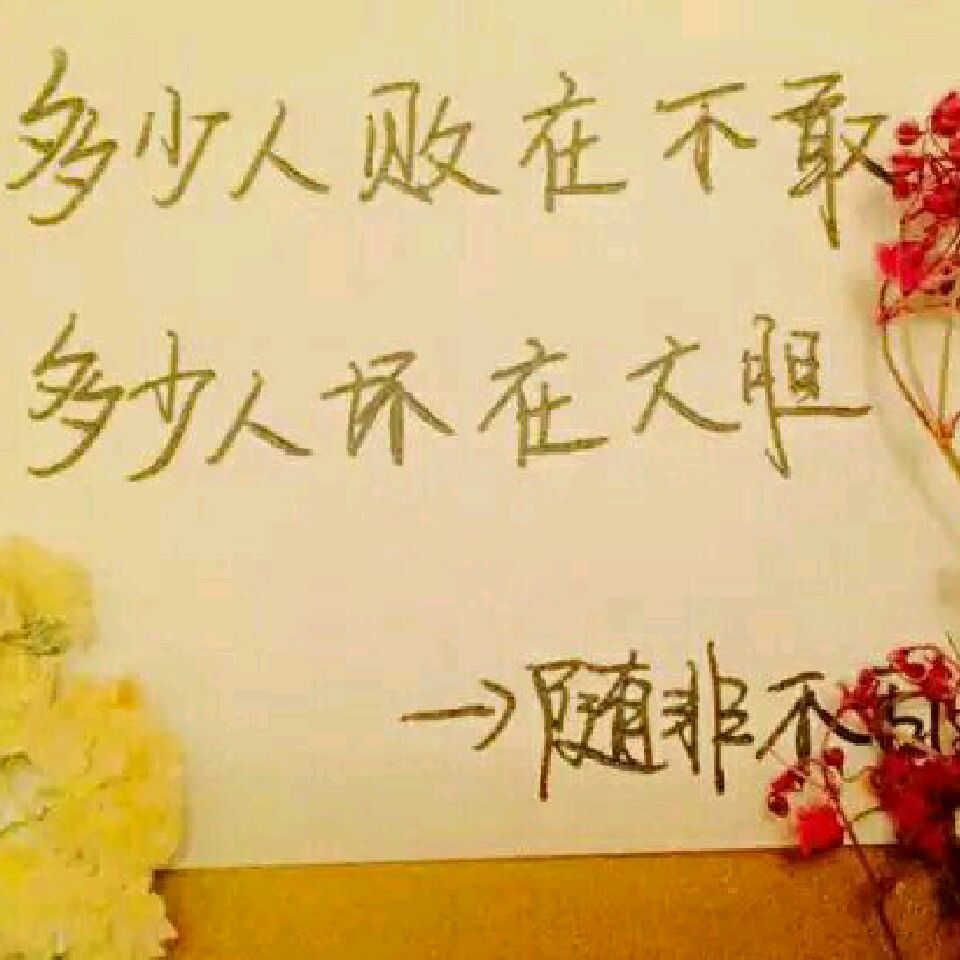 多少人败在不敢
多少人坏在大胆
→随非不可